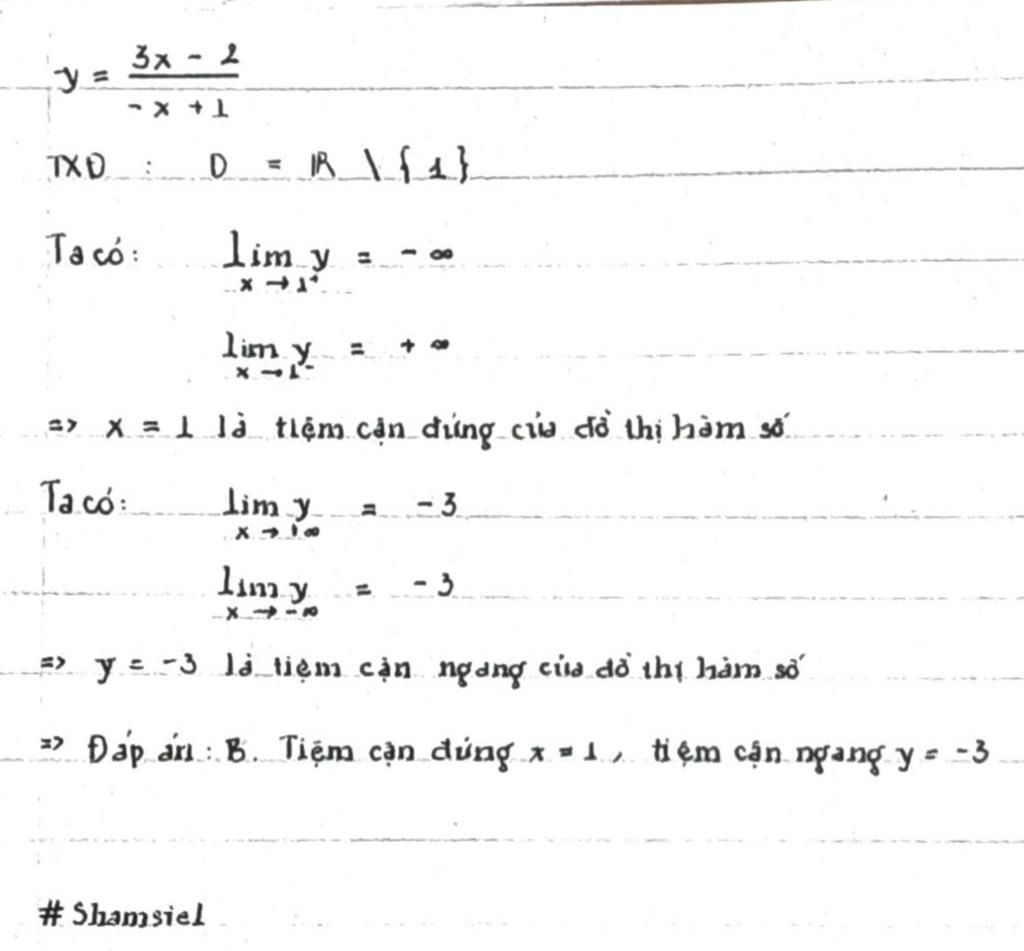 y = \frac{3x - 2}{-x + 1}
TXĐ : D = ℝ \ {1}
Ta có: lim y = - ∞
x → 1⁺
lim y = + ∞
x → 1⁻
=> x = 1 là tiệm cận đứng của đồ thị hàm số
Ta có: lim y = -3
x → +∞
lim y = -3
x → -∞
=> y = -3 là tiệm cận ngang của đồ thị hàm số
=> Đáp án : B. Tiệm cận đứng x = 1, tiệm cận ngang y = -3
# Shamsiel